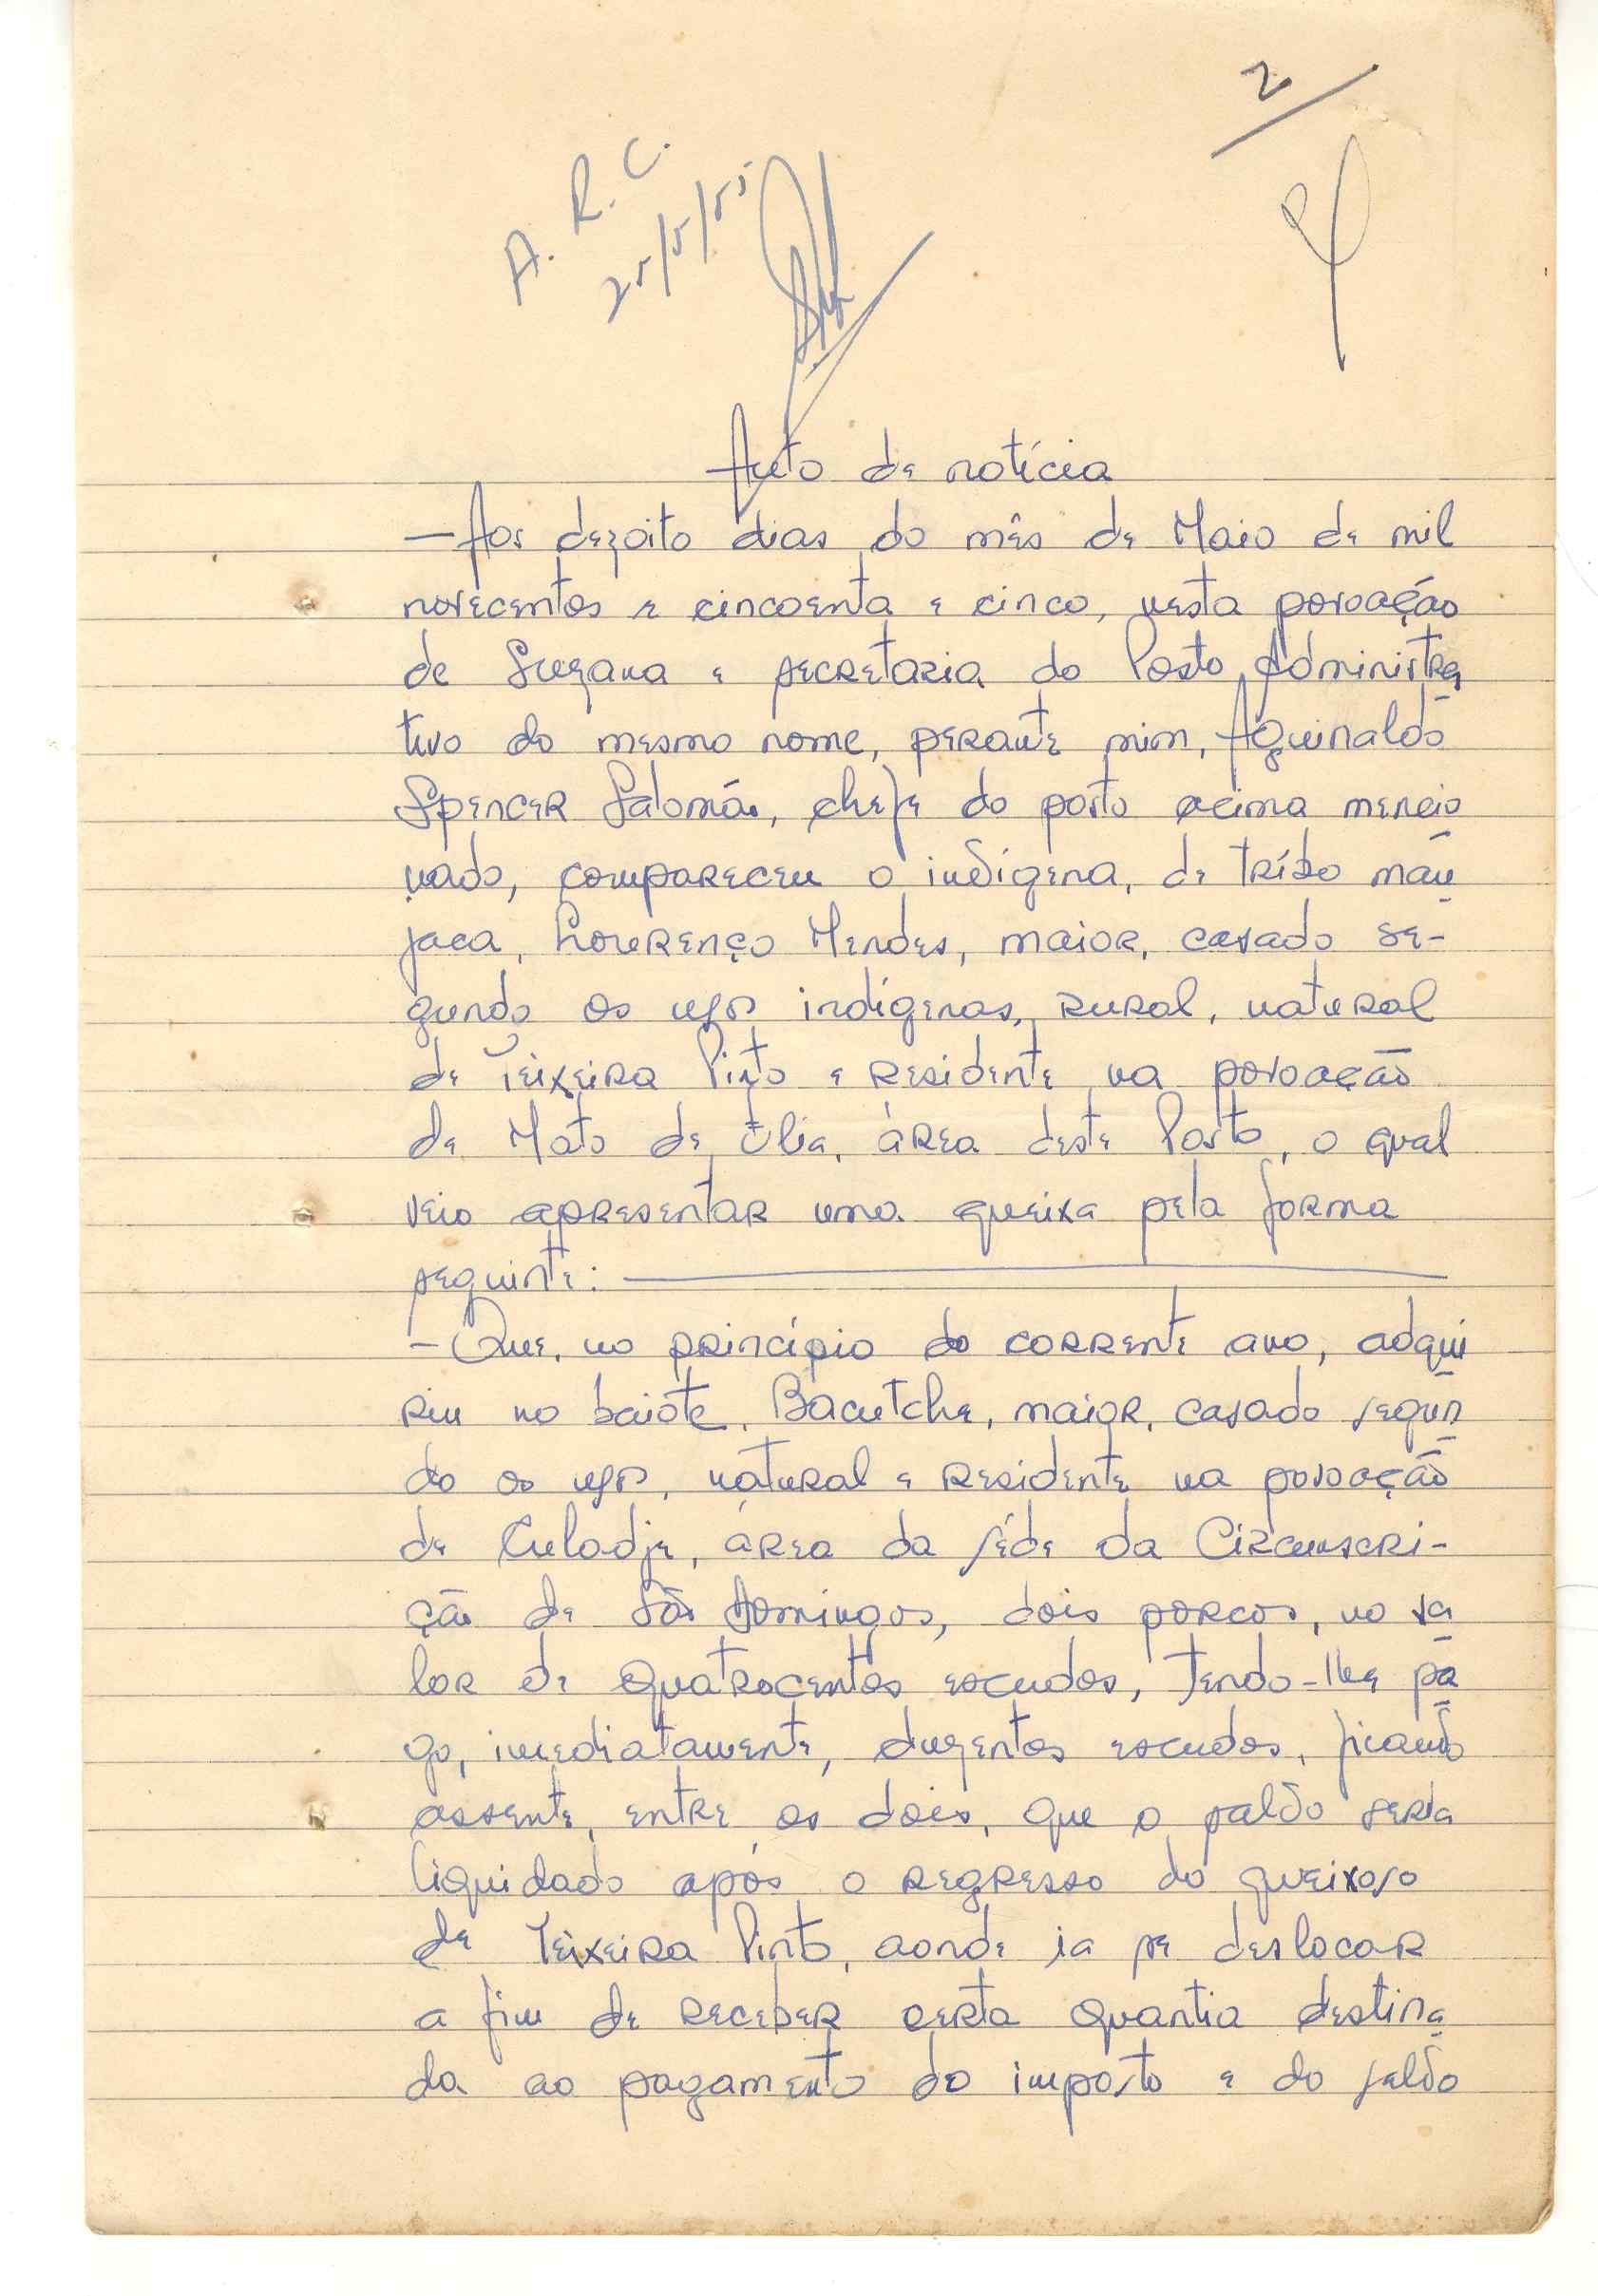 2
A. R. C.
25/5/55
Auto de notícia
— Aos dezoito dias do mês de Maio de mil
novecentos e cincoenta e cinco, nesta povoação
de Suzana e secretaria do Posto Administra
tivo do mesmo nome, perante mim, Aguinaldo
Spencer Salomão, chefe do posto acima mencio
nado, compareceu o indígena, de tribo man
jaca, Lourenço Mendes, maior, casado se-
gundo os usos indígenas, rural, natural
de Teixeira Pinto e residente na povoação
de Mato de Élia, área deste Posto, o qual
veio apresentar uma queixa pela forma
seguinte:
— Que, no princípio do corrente ano, adqui
riu no baiote, Bacutche, maior, casado segun
do os usos, natural e residente na povoação
de Culadje, área da séde da Circunscri-
ção de São Domingos, dois porcos, no va
lor de quatrocentos escudos, tendo-lhe pa
go, imediatamente, duzentos escudos, ficando
assente, entre os dois, que o saldo seria
liquidado após o regresso do queixoso
de Teixeira Pinto, aonde ia se deslocar
a fim de receber certa quantia destina
da ao pagamento do imposto e do saldo